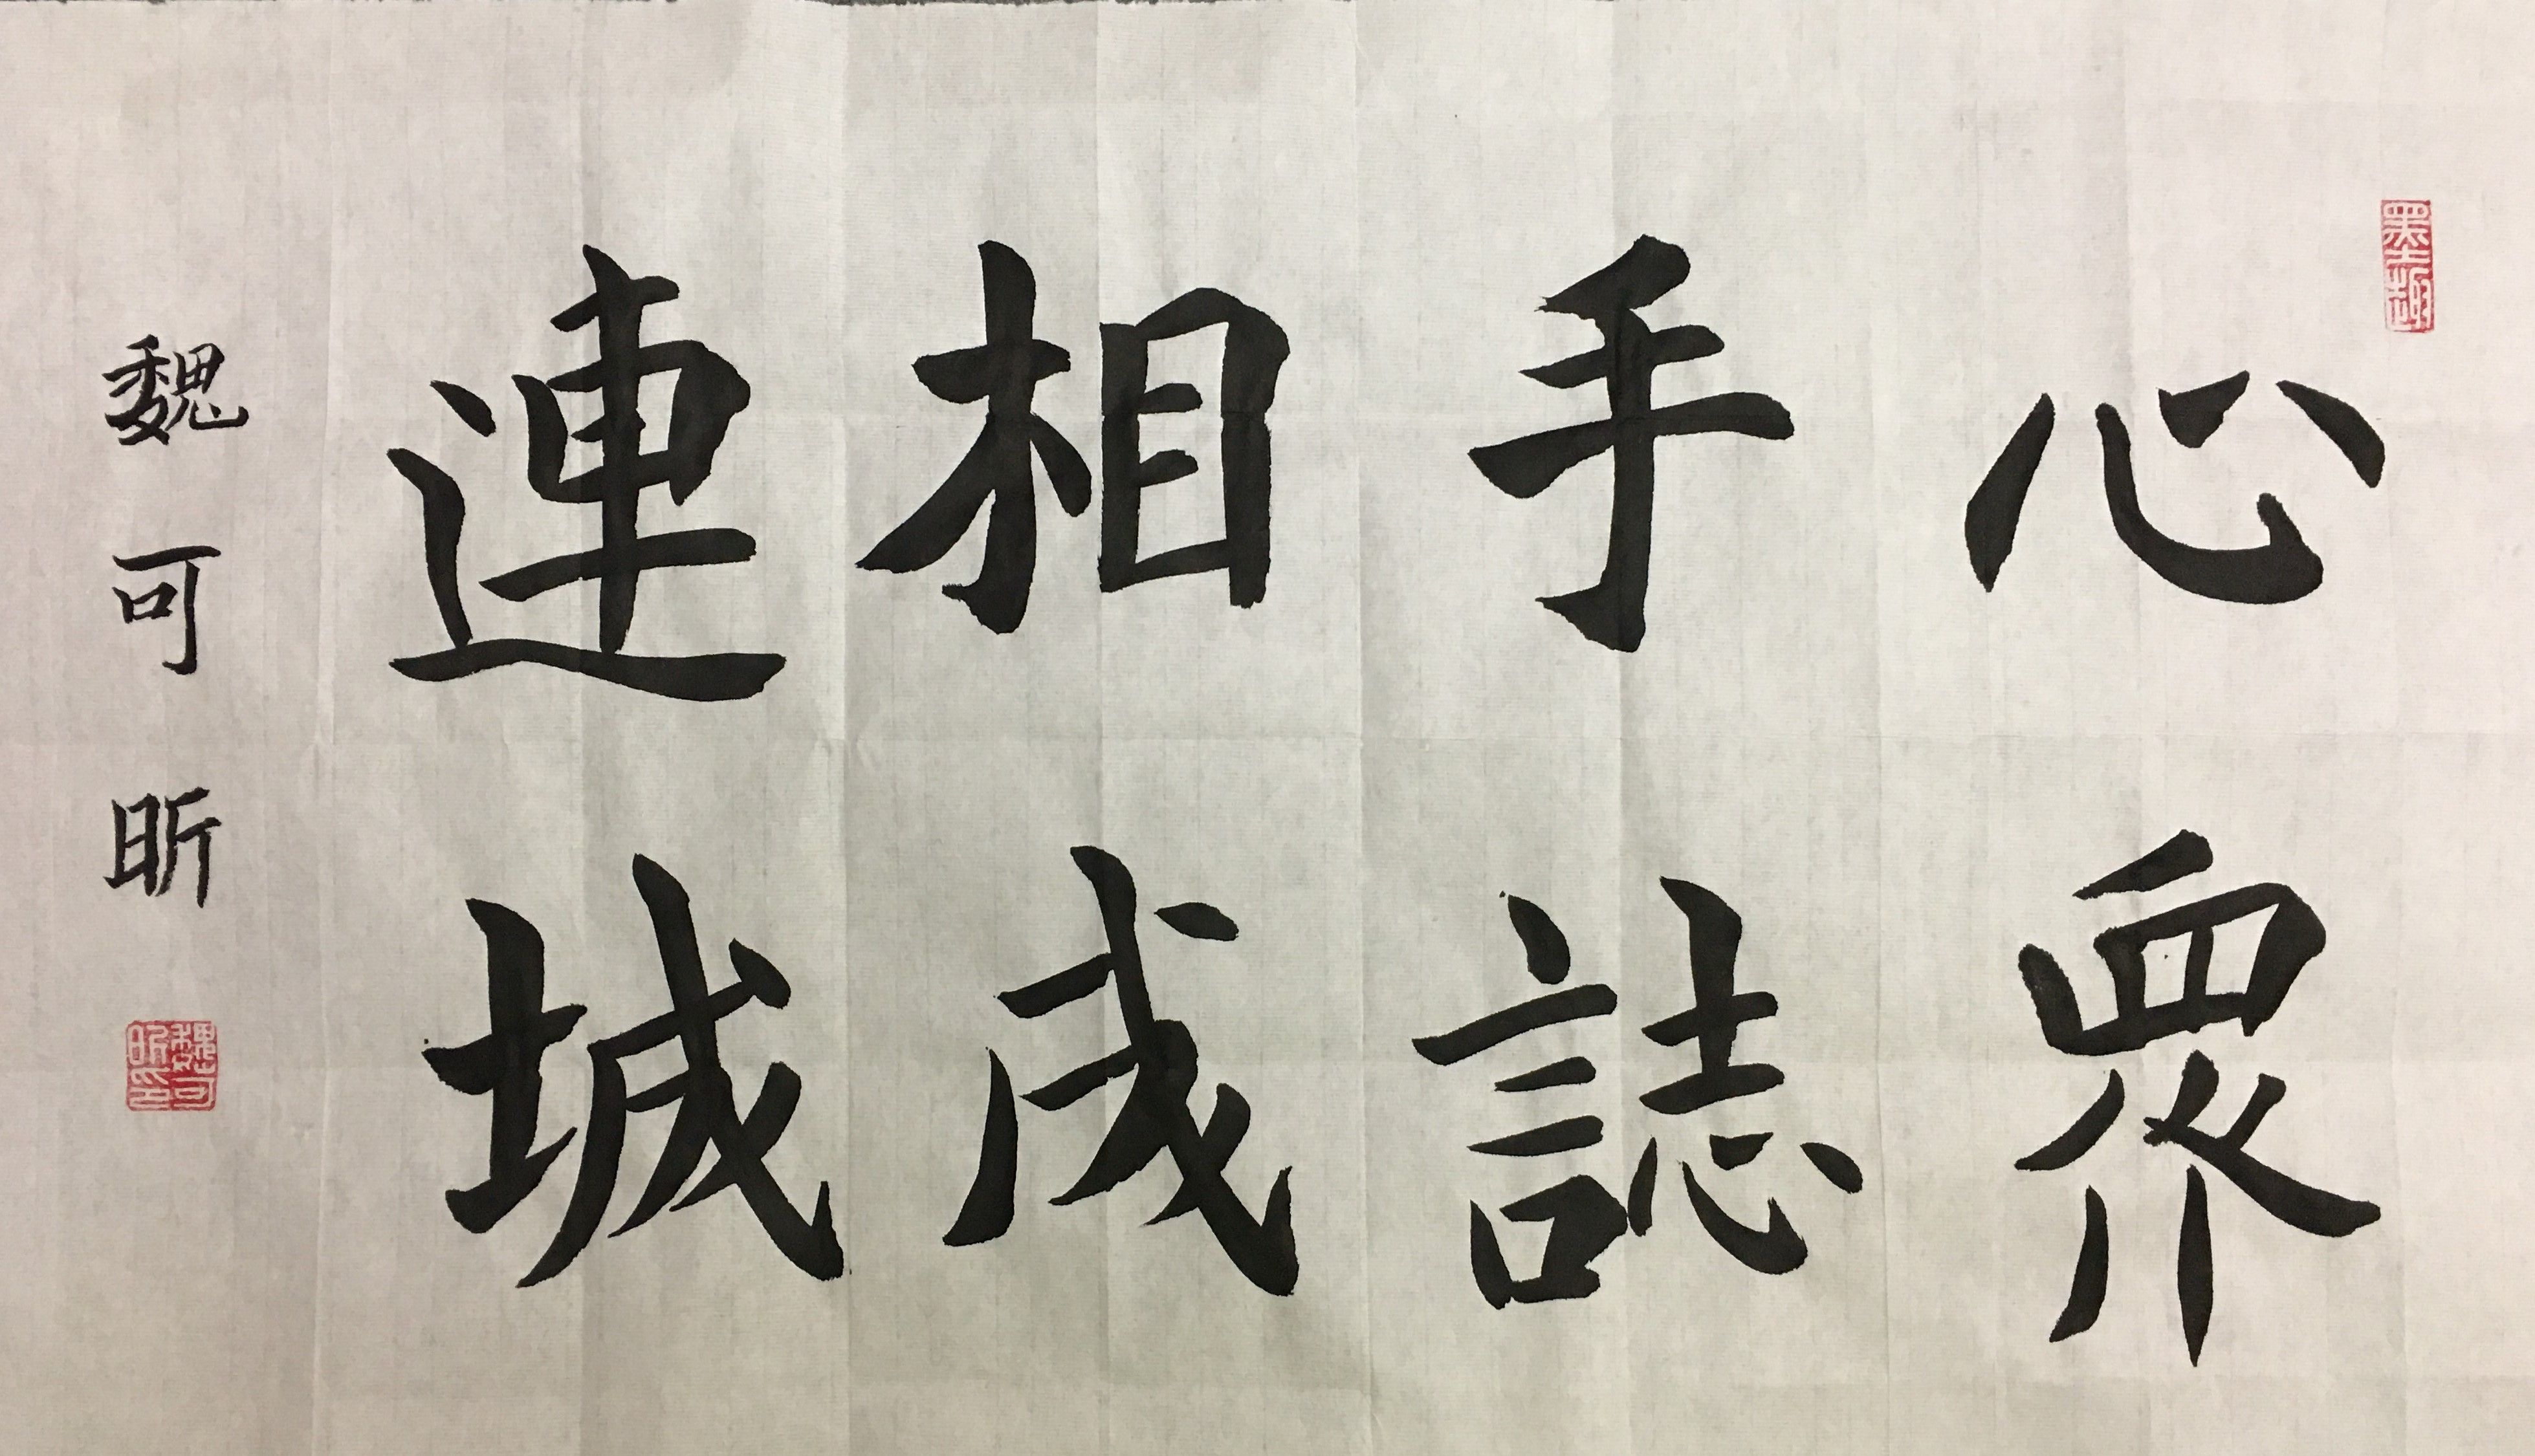 墨趣
心手相連
衆誌成城
魏可昕
魏可昕印